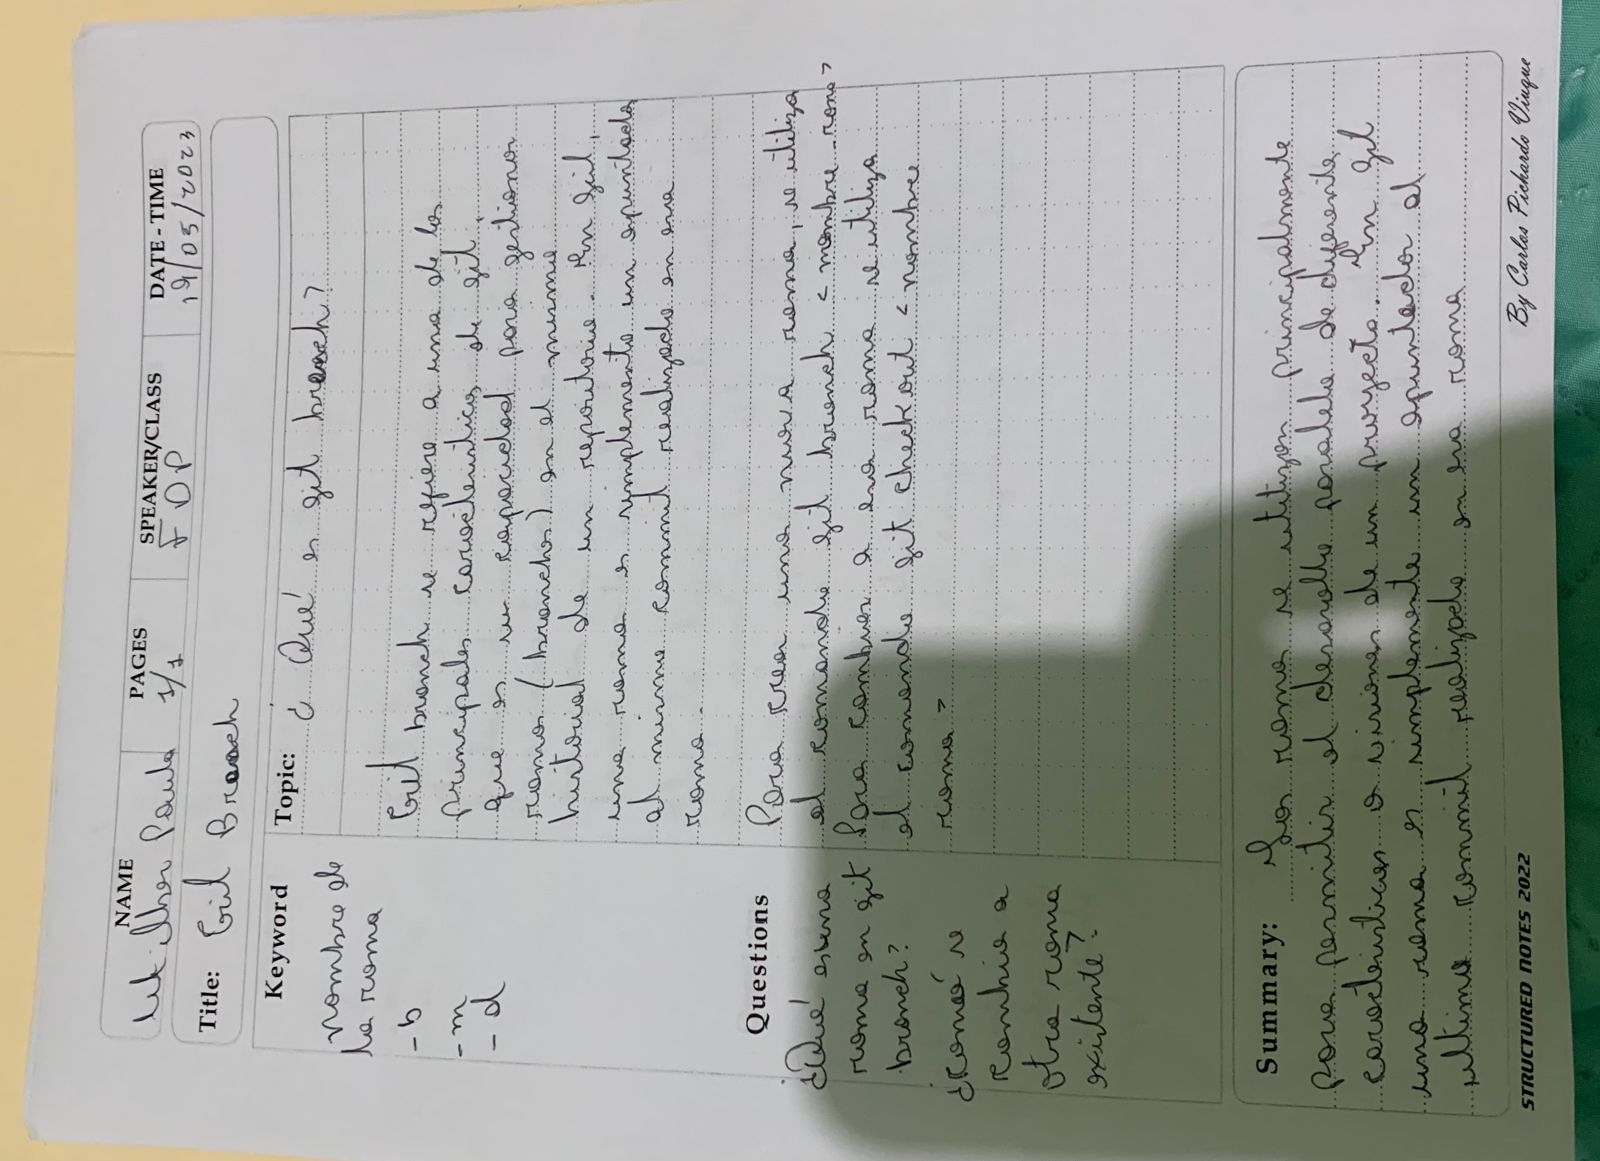 NAME
PAGES
SPEAKER/CLASS
DATE-TIME
Paula
1/1
FDP
19/05/2023
Title: Git Branch
Keyword
nombre de
la rama
-b
-m
-d
Topic: ¿Qué es git branch?
Git branch se refiere a una de las
principales características de git,
que es su capacidad para gestionar
ramas (branches) en el mismo
historial de un repositorio. En git,
una rama es simplemente un apuntador
al mismo commit realizado en esa
rama.
Questions
¿Qué es una
rama en git
branch?
¿Comó se
cambia a
otra rama
existente?
Para crear una nueva rama, se utiliza
el comando git branch <nombre-rama>
Para cambiar a esa rama se utiliza
el comando git checkout <nombre
rama>
Summary: Las ramas se utilizan principalmente
para permitir el desarrollo paralelo de diferentes
características o versiones de un proyecto. En git
una rama es simplemente un apuntador al
ultimo commit realizado en esa rama
STRUCTURED NOTES 2022
By Carlos Pichardo Viuque